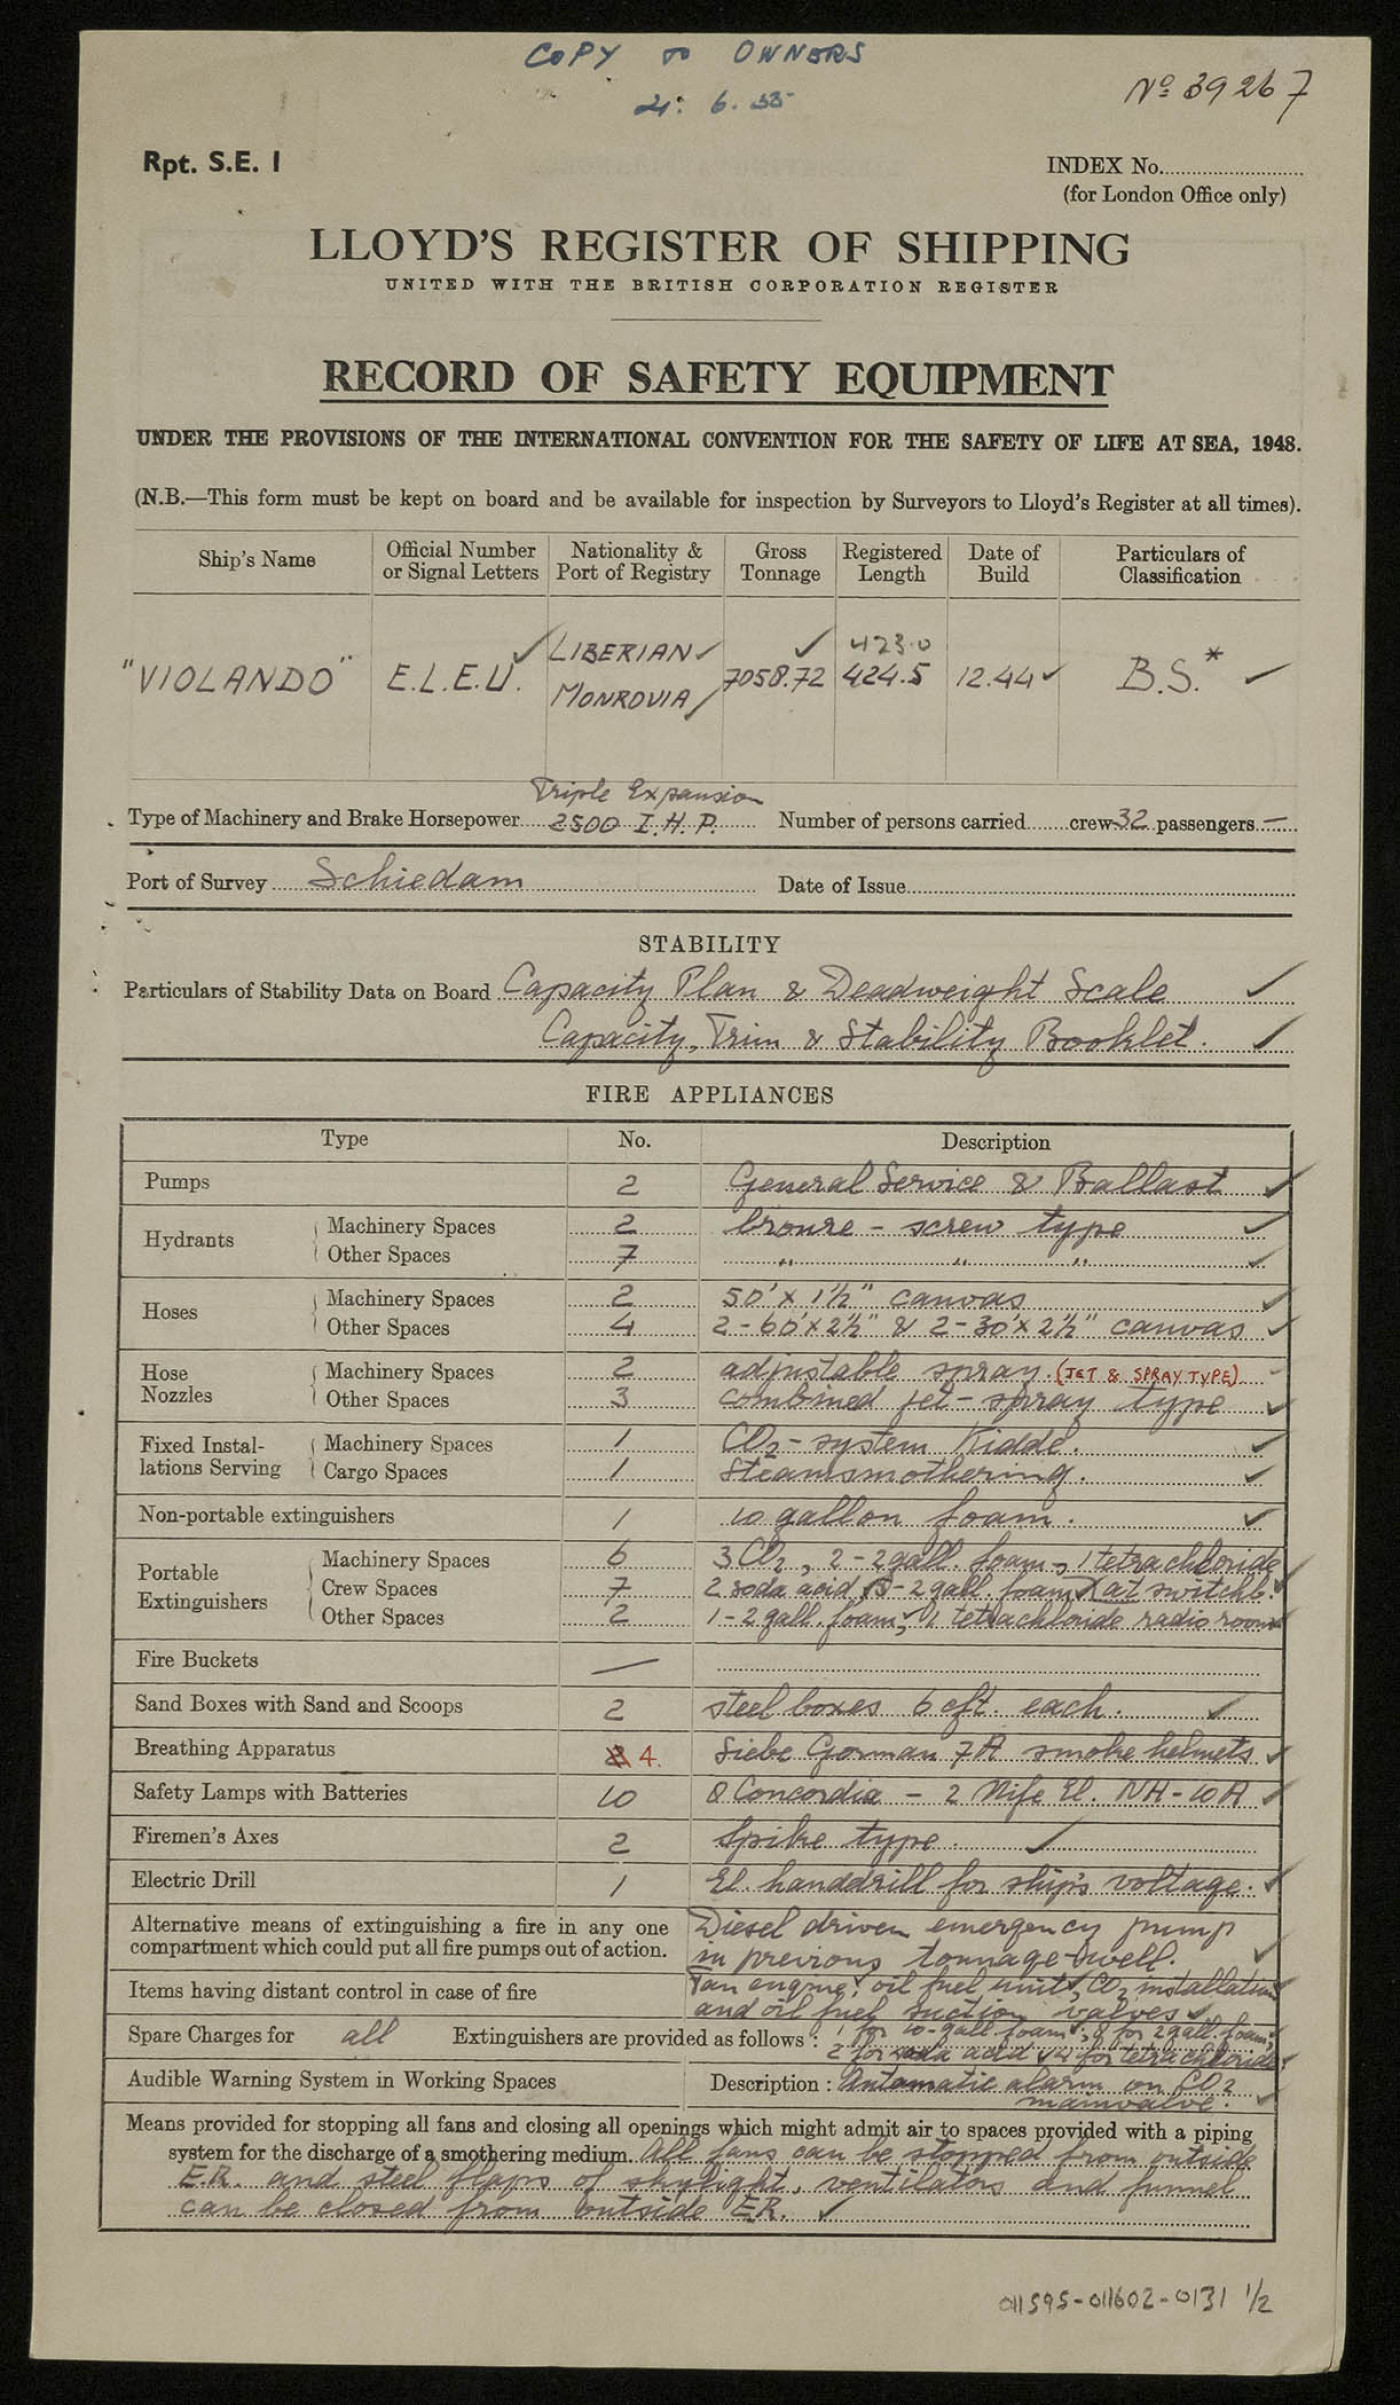 COPY TO OWNERS
6.55
No 39267
Rpt. S.E. 1
INDEX No.
(for London Office only)
LLOYD'S REGISTER OF SHIPPING
UNITED WITH THE BRITISH CORPORATION REGISTER
RECORD OF SAFETY EQUIPMENT
UNDER THE PROVISIONS OF THE INTERNATIONAL CONVENTION FOR THE SAFETY OF LIFE AT SEA, 1948.
(N.B.—This form must be kept on board and be available for inspection by Surveyors to Lloyd's Register at all times).
Ship's Name Official Number or Signal Letters Nationality & Port of Registry Gross Tonnage Registered Length Date of Build Particulars of Classification
"VIOLANDO" E.L.E.U. ✓ LIBERIAN ✓ MONROVIA ✓ 7058.72 ✓ 423.0 424.5 12.44 ✓ B.S.* ✓
Triple Expansion
Type of Machinery and Brake Horsepower 2500 I.H.P. Number of persons carried crew 32 passengers —
Port of Survey Schiedam Date of Issue
STABILITY
Particulars of Stability Data on Board Capacity Plan & Deadweight Scale ✓
Capacity, Trim & Stability Booklet. ✓
FIRE APPLIANCES
Type No. Description
Pumps 2 General Service & Ballast ✓
Hydrants Machinery Spaces 2 bronze - screw type ✓
Other Spaces 7 " " " ✓
Hoses Machinery Spaces 2 50' x 1½" canvas ✓
Other Spaces 4 2-60' x 2½" & 2-30' x 2½" canvas ✓
Hose Nozzles Machinery Spaces 2 adjustable spray. (JET & SPRAY TYPE)
Other Spaces 3 combined jet-spray type ✓
Fixed Installations Serving Machinery Spaces 1 CO2-system Kidde. ✓
Cargo Spaces 1 Steamsmothering. ✓
Non-portable extinguishers 1 10 gallon foam. ✓
Portable Extinguishers Machinery Spaces 6 3 CO2, 2-2 gall. foam, 1 tetrachloride ✓
Crew Spaces 7 2 soda acid, 5-2 gall. foam at switchb. ✓
Other Spaces 2 1-2 gall. foam, 1 tetrachloride radio room ✓
Fire Buckets —
Sand Boxes with Sand and Scoops 2 steel boxes 6 cft. each. ✓
Breathing Apparatus 4. Siebe Gorman 7A smoke helmets ✓
Safety Lamps with Batteries 10 8 Concordia - 2 Nife El. NH-10A ✓
Firemen's Axes 2 Spike type. ✓
Electric Drill 1 El. handdrill for ship's voltage. ✓
Alternative means of extinguishing a fire in any one Diesel driven emergency pump
compartment which could put all fire pumps out of action. in previous tonnage-well. ✓
Items having distant control in case of fire Fan engine, oil fuel units, CO2 installation
and oil fuel suction valves ✓
Spare Charges for all Extinguishers are provided as follows: 1 for 10-gall. foam, 8 for 2 gall. foam,
2 for soda acid, for tetrachloride.
Audible Warning System in Working Spaces Description: Automatic alarm on CO2
mainvalve. ✓
Means provided for stopping all fans and closing all openings which might admit air to spaces provided with a piping
system for the discharge of a smothering medium. All fans can be stopped from outside
E.R. and steel flaps of skylight, ventilators and funnel
can be closed from outside E.R. ✓
011595-011602-0131 1/2